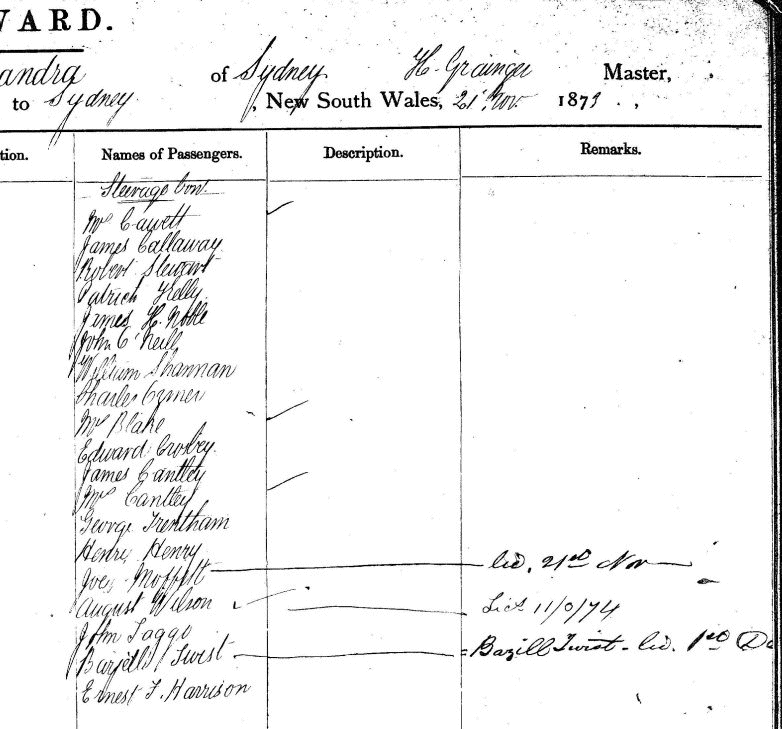 WARD.
andra of Sydney H. Grainger Master,
to Sydney, New South Wales, 21 Nov. 1873.,
tion. Names of Passengers. Description. Remarks.
Steerage Con.
Mrs Cawett
James Callaway
Robert Stewart
Patrick Kelly
James H. Noble
John O'Neill
William Shannan
Charles
Mrs Blake
Edward Crosbey
James Cantley
Mrs Cantley
George Trentham
Henry Henry
Joe Moffitt 21st Nov
August Wilson 11/0/74
John Taggo
Twist Bazill Twist - 1st De
Ernest F. Harrison